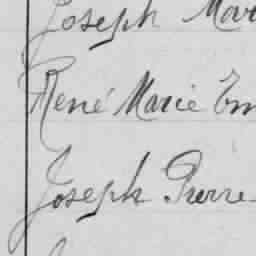 Joseph Mar
René Marie Em
Joseph Pierre